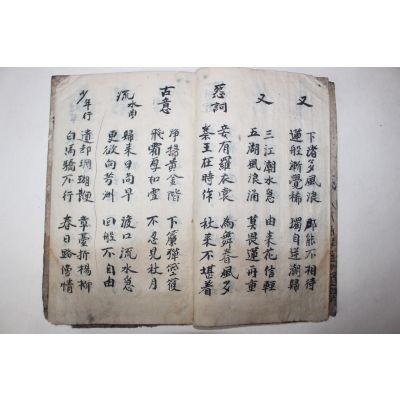 又
下渚多風浪 那能不相待
蓮舩漸覺稀 獨自逆潮歸
又
三江潮水急 由来花信輕
五湖風浪涌 莫畏蓮舟重
怨詞
妾有羅衣裳 為舞春風多
秦王在時作 秋来不堪着
古意
淨掃黃金階 下簾彈箜篌
飛霜厚如雪 不忍見秋月
流水曲
歸来日尚早 渡口流水急
更欲向芳洲 回舩不自由
少年行
遺却珊瑚鞭 章臺折楊柳
白馬驕不行 春日路傍情